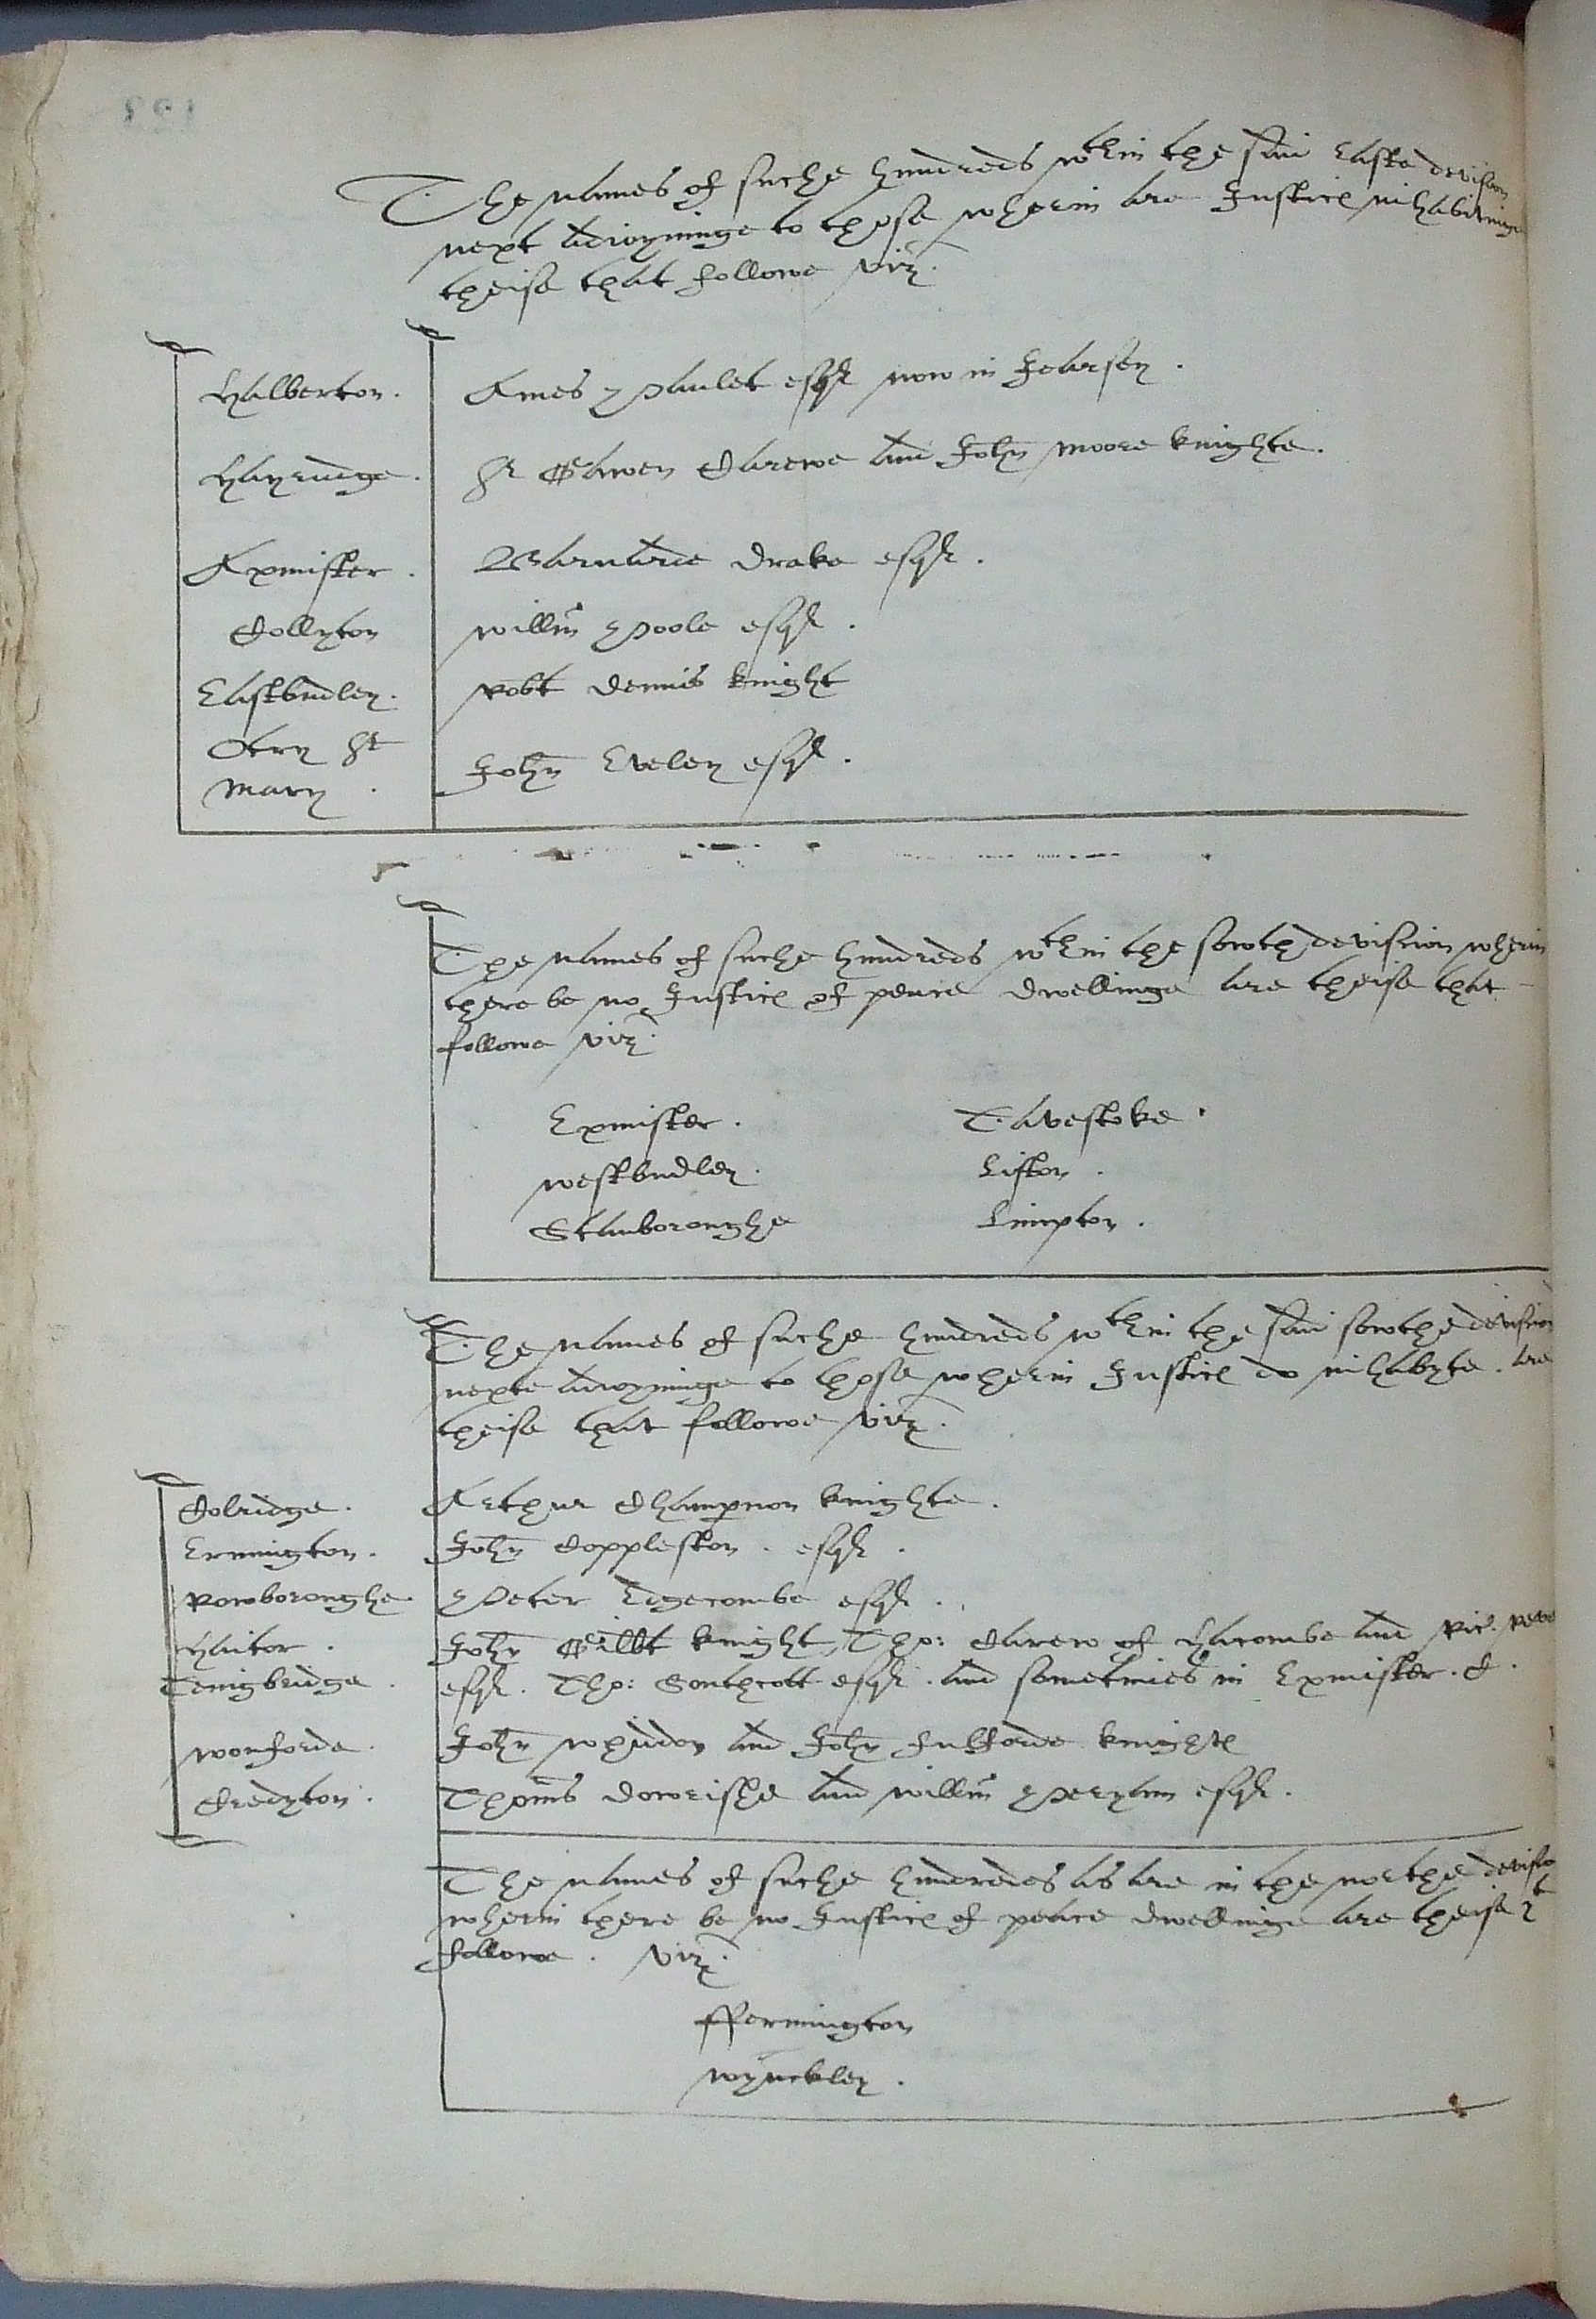 The names of suche hundreds wthin the said easte devision
next adioyninge to those wherin are Justices inhabitinge
theise that followe viz.
Halberton. Ames Paulet esqr now in Jearsey.
Hayrudge. Sr Gawen Carewe and John Moore knighte.
Axmister. Barnarde Drake esqr.
Collyton Willm Poole esqr.
Eastbudley. Robt Dennis knight
Otry St
Mary. John Eveley esqr.
The names of suche hundreds wthin the sowth devision wherin
there be no Justices of peace dwellinge are theise that
followe viz.
Exmister. Tavestoke.
Westbudley. Lifton.
Stanboroughe Limpton.
The names of suche hundreds wthin the said sowthe devision
nexte adioyninge to those wherin Justices do inhabyte. are
theise that followe viz.
Colridge. Arthur Champnon knighte.
Ermington. John Coppleston. esqr.
Rowboroughe. Peter Edgecombe esqr.
Haitor. John Gilbt knight, Tho: Carew of Hacombe and Ric.
Teingbridge. esqr. Tho: Southcott esqr. and sometimes in Exmister. C.
Wonforde. John Whiddon and John Fulforde knightes
Credyton. Thoms Dowrishe and Willm Peryam esqr.
The names of suche hundredes as are in the northe devisio
wherin there be no Justices of peace dwellinge are theise yt
followe. viz.
ffermington
Wynckley.